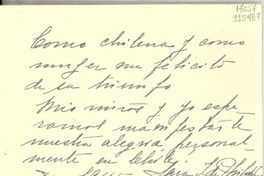 17057
995487
Como chilena y como
mujer me felicito
de su triunfo
Mis niños y yo espe
ramos manifestarle
nuestra alegría personal
mente en Chile.
Sara